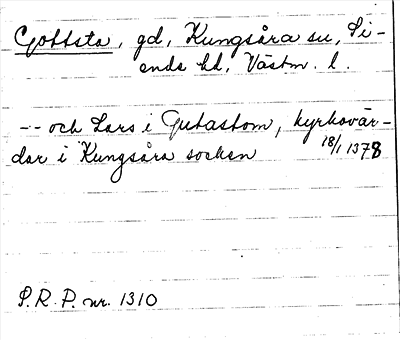 Gottsta, gd, Kungsåra sn, Si-
ende hd, Västm. l.
-- och Lars i Gutastom, kyrkovär-
dar i Kungsåra socken 18/1 1378
S.R.P. nr. 1310